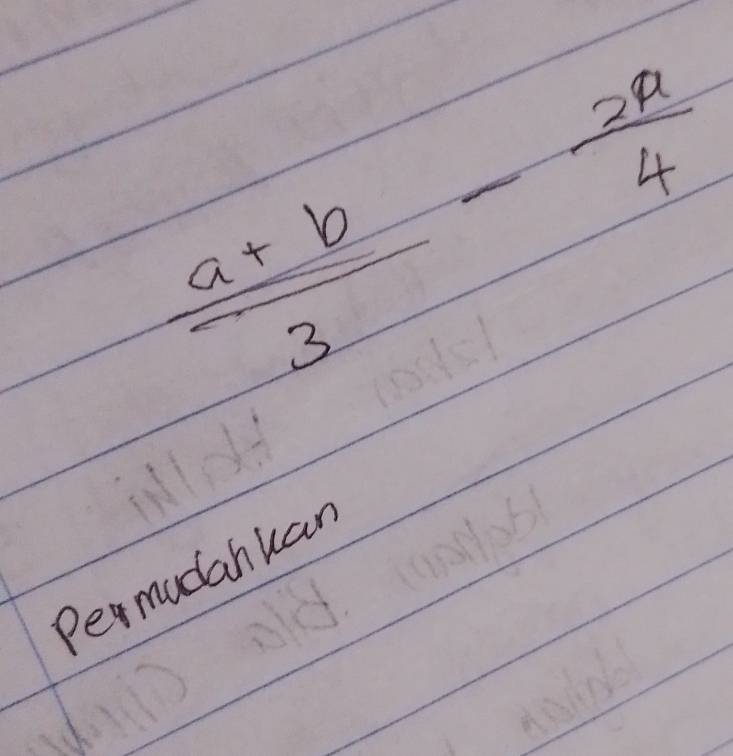 a + b / 3 - 2a / 4
Permudahkan